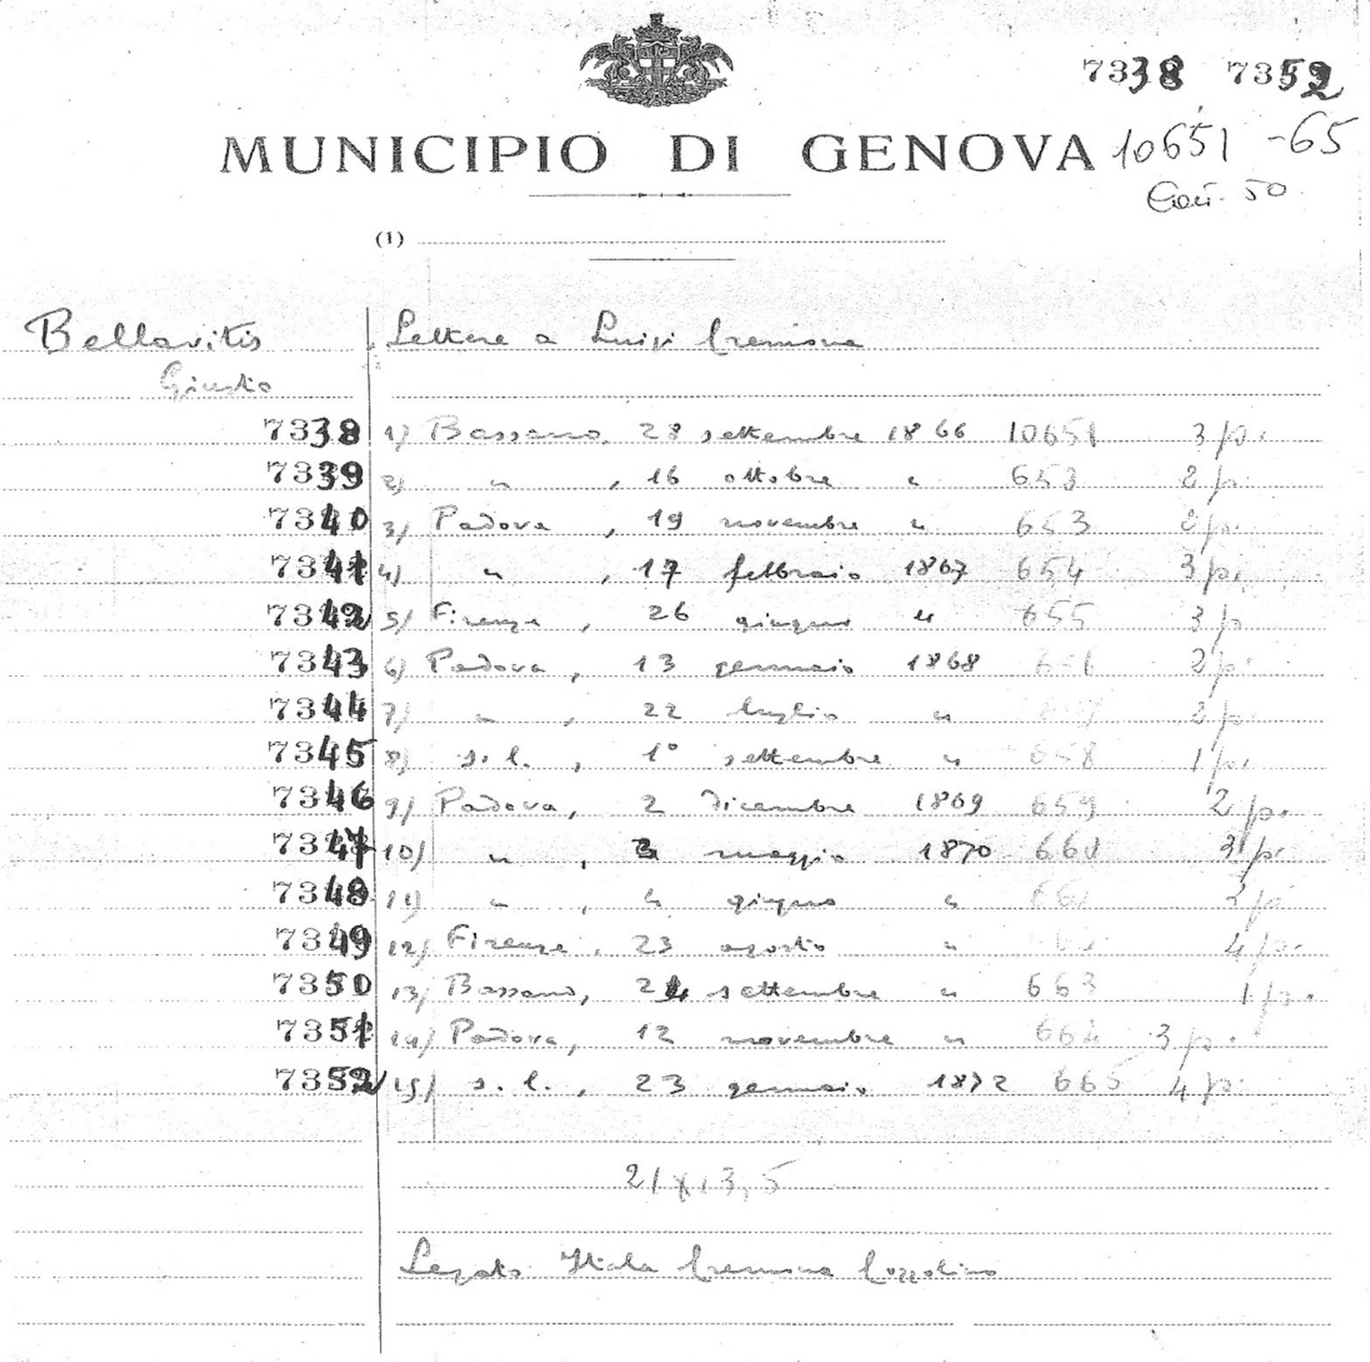 7338 7352
MUNICIPIO DI GENOVA 10651 -65
50
(1)
Bellavitis Lettere a Luigi Cremona
Giusto
7338 1) Bassano, 28 settembre 1866 10651 3 p.
7339 2) " , 16 ottobre " 652 2 p.
7340 3) Padova , 19 novembre " 653 2 p.
7341 4) " , 17 febbraio 1867 654 3 p.
7342 5) Firenze , 26 giugno " 655 3 p
7343 6) Padova , 13 gennaio 1868 656 2 p.
7344 7) " , 22 luglio " 657 2 p.
7345 8) s. l. , 1° settembre " 658 1 p.
7346 9) Padova, 2 dicembre 1869 659 2 p.
7347 10) " , maggio 1870 660 p.
7348 11) " , 4 giugno " 661 p
7349 12) Firenze , 23 agosto " 4 p.
7350 13) Bassano, 24 settembre " 663 1 p.
7351 14) Padova, 12 novembre " 664 3 p.
7352 15) s. l. , 23 gennaio 1872 665 4 p.
21 x 13,5
Legato Itala Cremona Cozzolino